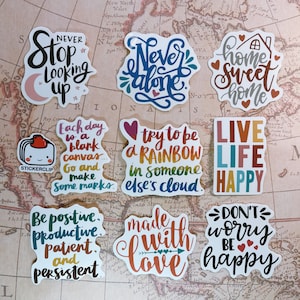 NEVER
Stop
Looking
up
Never
alone
home
sweet
home
STICKERCLIP
Each day
is a
blank
canvas
Go and
make
some marks
try to be
a RAINBOW
in someone
else's cloud
LIVE
LIFE
HAPPY
Be positive,
productive,
patient
and
persistent
made
with
love
DON'T
worry
BE
happy